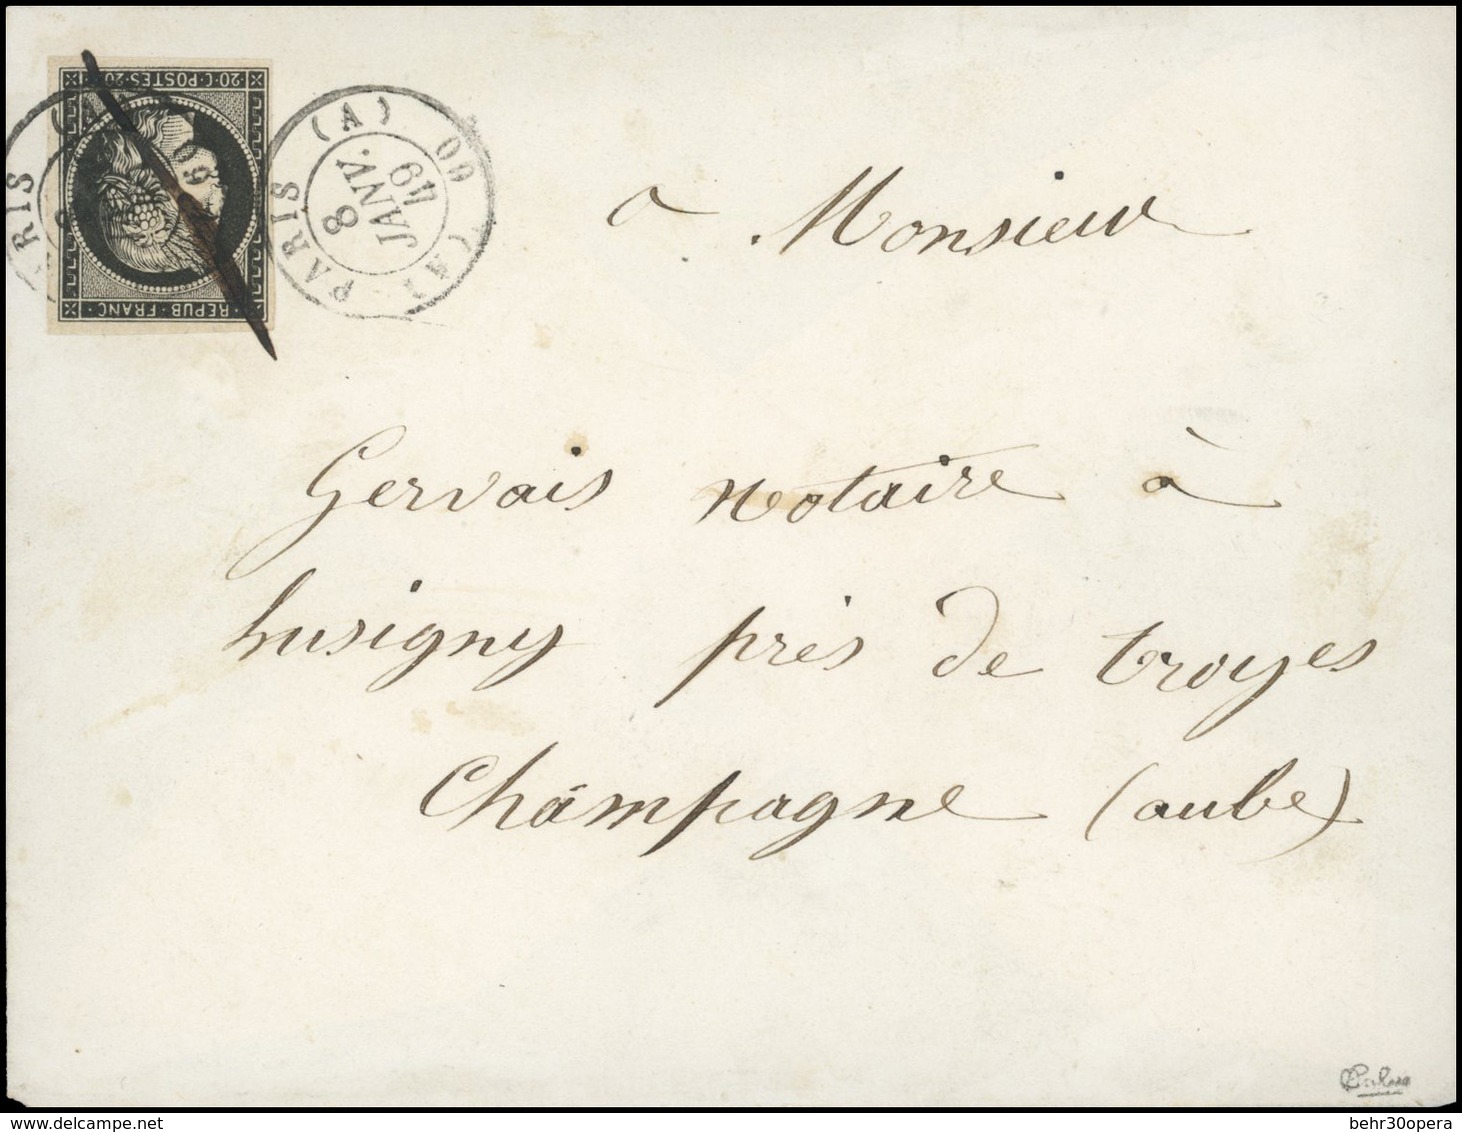 20·C·POSTES·20
REPUB·FRANC·
PARIS (A)
8
JANV.
49
60
a Monsieur
Gervais notaire à
Lusigny près de troyes
Champagne (aube)
delcampe.net
behr30opera